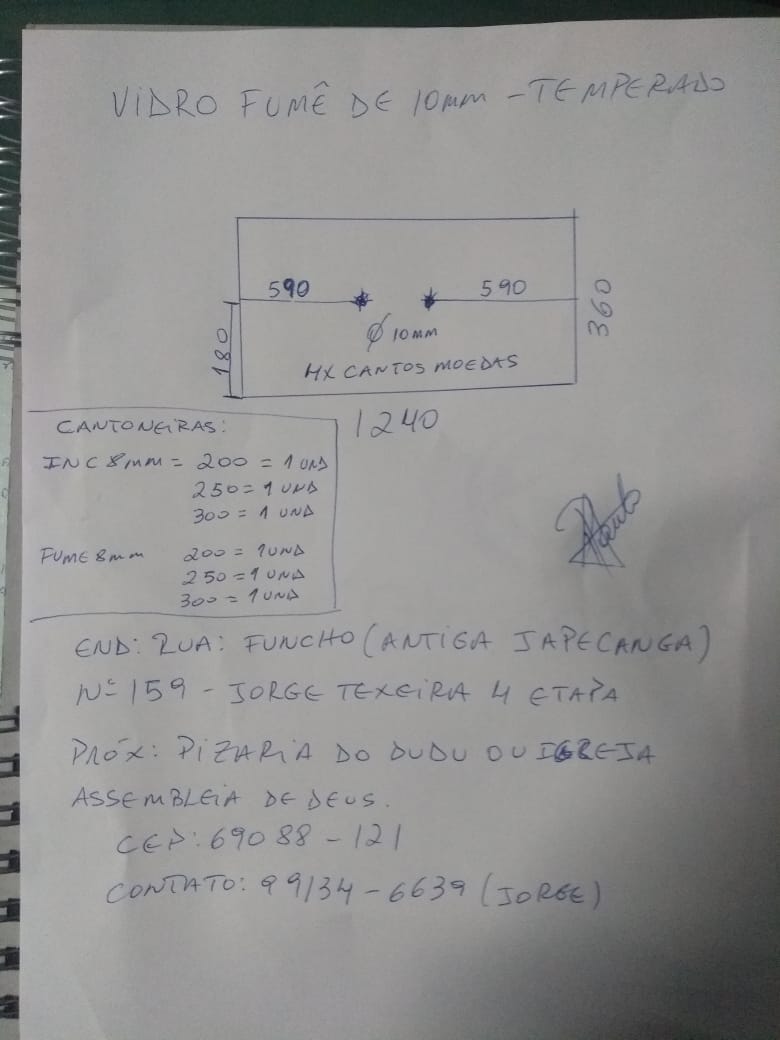 VIDRO FUMÊ DE 10mm - TEMPERADO
590
590
180
360
Ø 10mm
4X CANTOS MOEDAS
1240
CANTONEIRAS:
INC 8mm = 200 = 1 UND
250 = 1 UND
300 = 1 UND
FUME 8mm 200 = 1 UND
250 = 1 UND
300 = 1 UND
END: RUA: FUNCHO (ANTIGA JAPECANGA)
Nº 159 - JORGE TEXEIRA 4 ETAPA
PRÓX: PIZARIA DO DUDU OU IGREJA
ASSEMBLEIA DE DEUS.
CEP: 69088-121
CONTATO: 99134-6639 (JORGE)